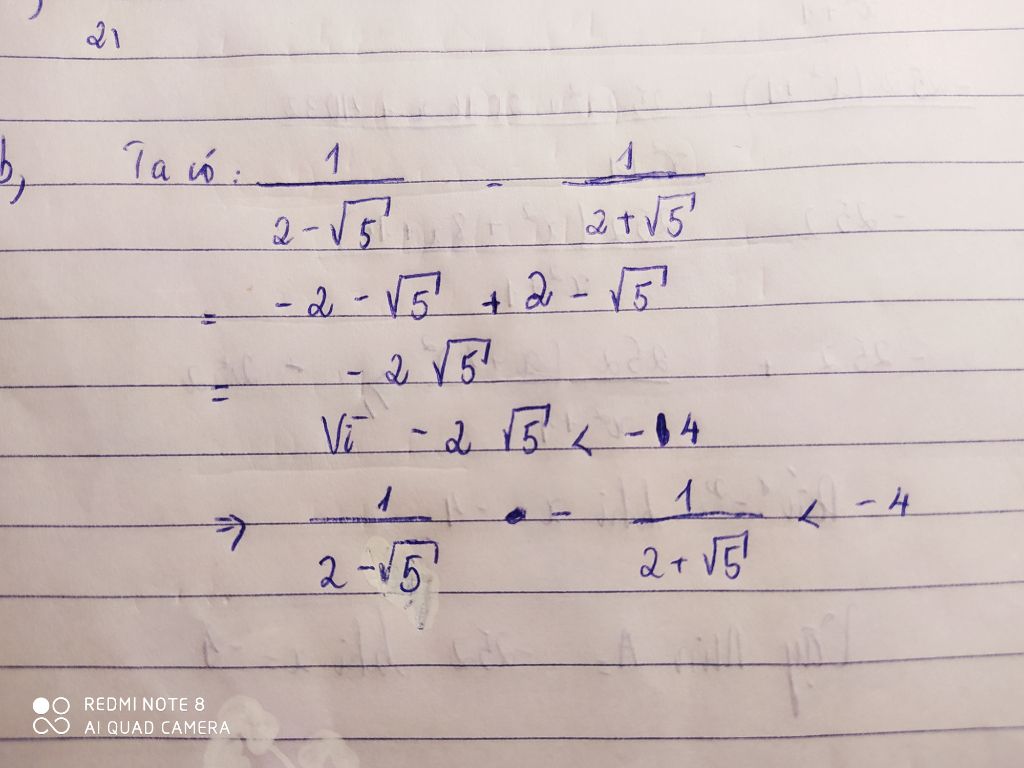 21
b, Ta có: 1/(2-√5) - 1/(2+√5)
= -2 - √5 + 2 - √5
= -2√5
Vì -2√5 < -4
⇒ 1/(2-√5) - 1/(2+√5) < -4
REDMI NOTE 8
AI QUAD CAMERA